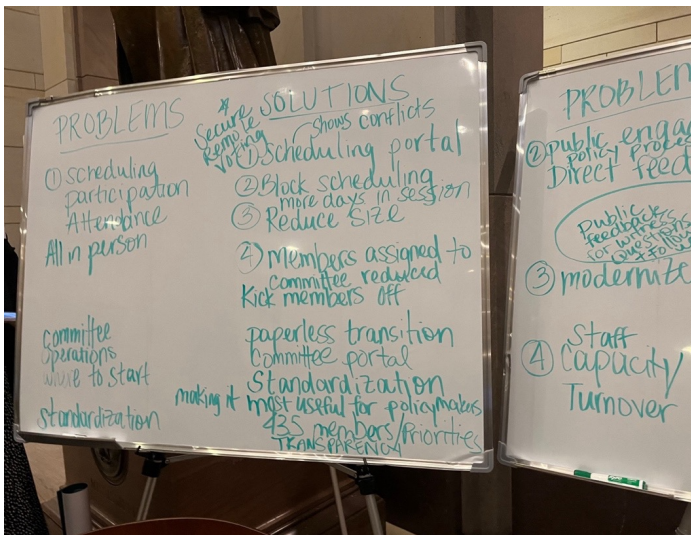 PROBLEMS
① scheduling
participation
Attendance
All in person
committee
operations
where to start
standardization
SOLUTIONS
* Secure
Remote
Voting
shows conflicts
① Scheduling portal
② Block scheduling
more days in session
③ Reduce size
④ Members assigned to
committee reduced
Kick members off
paperless transition
committee portal
Standardization
making it most useful for policymakers
435 members/Priorities
TRANSPARENCY
PROBLEM
② public engag
policy proce
Direct feed
Public
feedback
for witness
questions
③ modernize
④ Staff
Capacity
Turnover